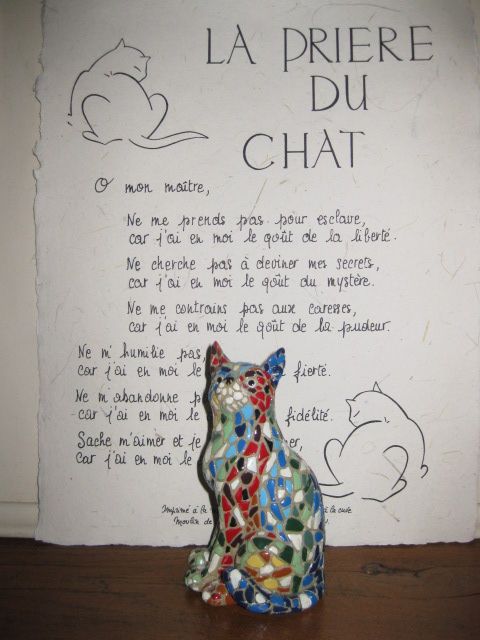 LA PRIERE
DU
CHAT
O mon maître,
Ne me prends pas pour esclave,
car j'ai en moi le goût de la liberté.
Ne cherche pas à deviner mes secrets,
car j'ai en moi le goût du mystère.
Ne me contrains pas aux caresses,
car j'ai en moi le goût de la pudeur.
Ne m'humilie pas,
car j'ai en moi le fierté.
Ne m'abandonne
car j'ai en moi le fidélité.
Sache m'aimer et je
Car j'ai en moi le
Imprimé à la à la cuve
Moulin de